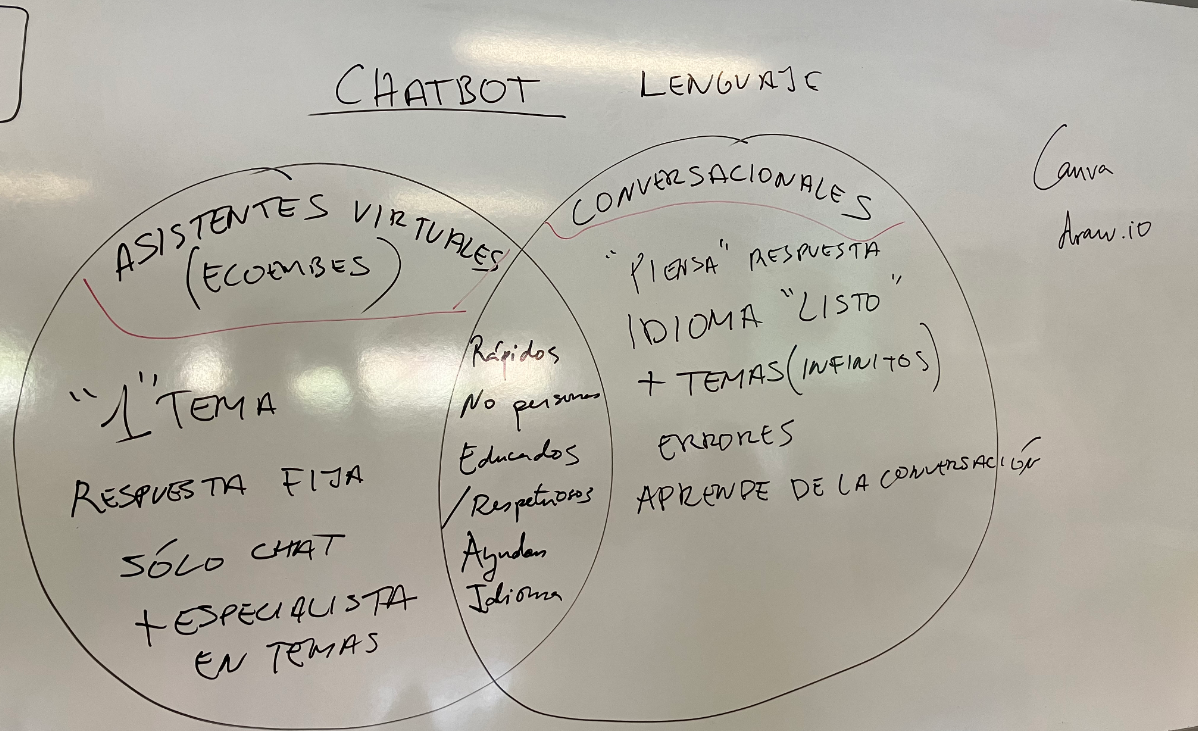 CHATBOT LENGUAJE
ASISTENTES VIRTUALES
(ECOEMBES)
"1" TEMA
RESPUESTA FIJA
SÓLO CHAT
+ ESPECIALISTA
EN TEMAS
Rápidos
No personas
Educados
/Respetuosos
Ayudan
Idioma
CONVERSACIONALES
"PIENSA" RESPUESTA
IDIOMA "LISTO"
+ TEMAS (INFINITOS)
ERRORES
APRENDE DE LA CONVERSACIÓN
Canva
draw.io